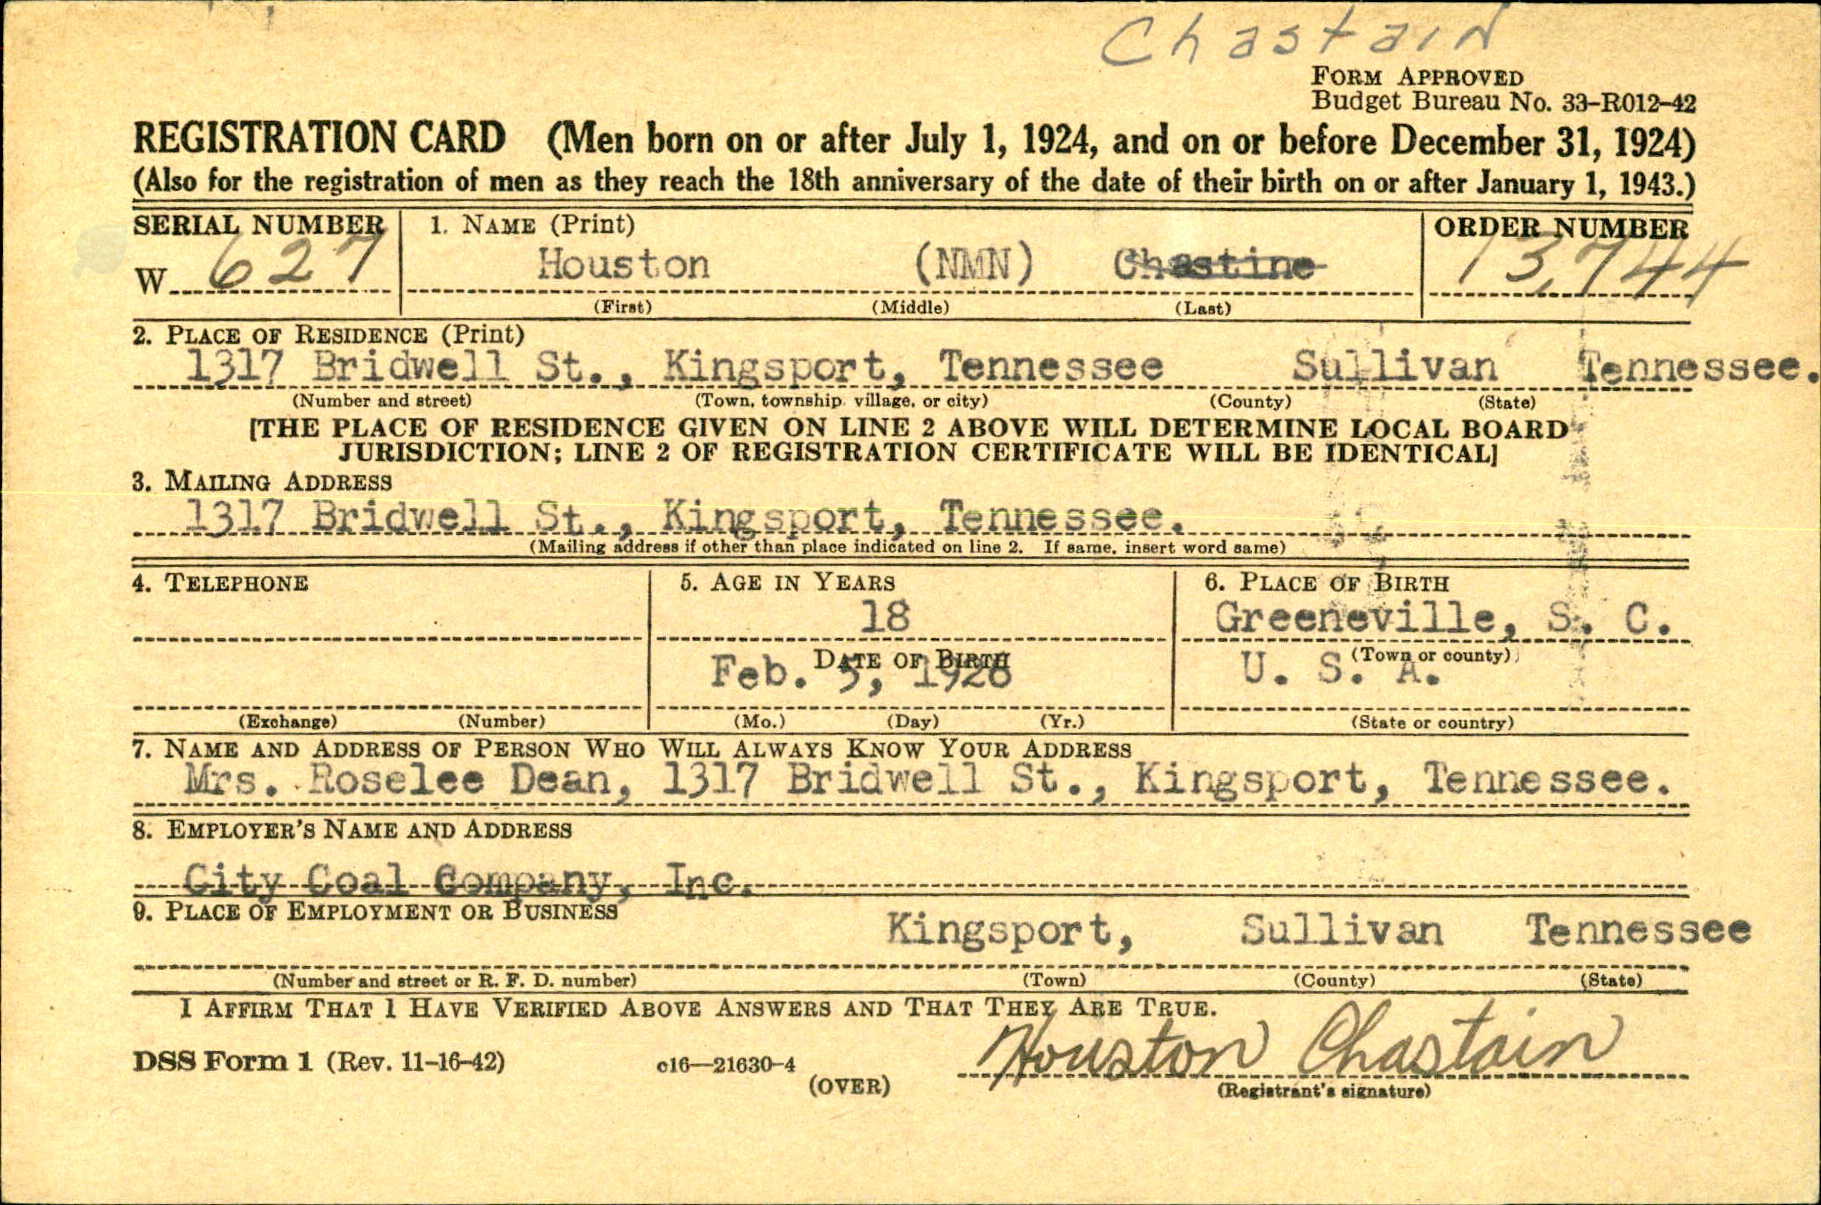 Chastain
FORM APPROVED
Budget Bureau No. 33-R012-42
REGISTRATION CARD (Men born on or after July 1, 1924, and on or before December 31, 1924)
(Also for the registration of men as they reach the 18th anniversary of the date of their birth on or after January 1, 1943.)
SERIAL NUMBER 1. NAME (Print) ORDER NUMBER
W 627 Houston (NMN) Chastine 13,744
(First) (Middle) (Last)
2. PLACE OF RESIDENCE (Print)
1317 Bridwell St., Kingsport, Tennessee Sullivan Tennessee.
(Number and street) (Town, township, village, or city) (County) (State)
[THE PLACE OF RESIDENCE GIVEN ON LINE 2 ABOVE WILL DETERMINE LOCAL BOARD
JURISDICTION; LINE 2 OF REGISTRATION CERTIFICATE WILL BE IDENTICAL]
3. MAILING ADDRESS
1317 Bridwell St., Kingsport, Tennessee.
(Mailing address if other than place indicated on line 2. If same, insert word same)
4. TELEPHONE 5. AGE IN YEARS 6. PLACE OF BIRTH
18 Greeneville, S. C.
DATE OF BIRTH (Town or county)
Feb. 5, 1926 U. S. A.
(Exchange) (Number) (Mo.) (Day) (Yr.) (State or country)
7. NAME AND ADDRESS OF PERSON WHO WILL ALWAYS KNOW YOUR ADDRESS
Mrs. Roselee Dean, 1317 Bridwell St., Kingsport, Tennessee.
8. EMPLOYER'S NAME AND ADDRESS
City Coal Company, Inc.
9. PLACE OF EMPLOYMENT OR BUSINESS
Kingsport, Sullivan Tennessee
(Number and street or R. F. D. number) (Town) (County) (State)
I AFFIRM THAT I HAVE VERIFIED ABOVE ANSWERS AND THAT THEY ARE TRUE.
DSS Form 1 (Rev. 11-16-42) c16—21630-4 Houston Chastain
(OVER) (Registrant's signature)